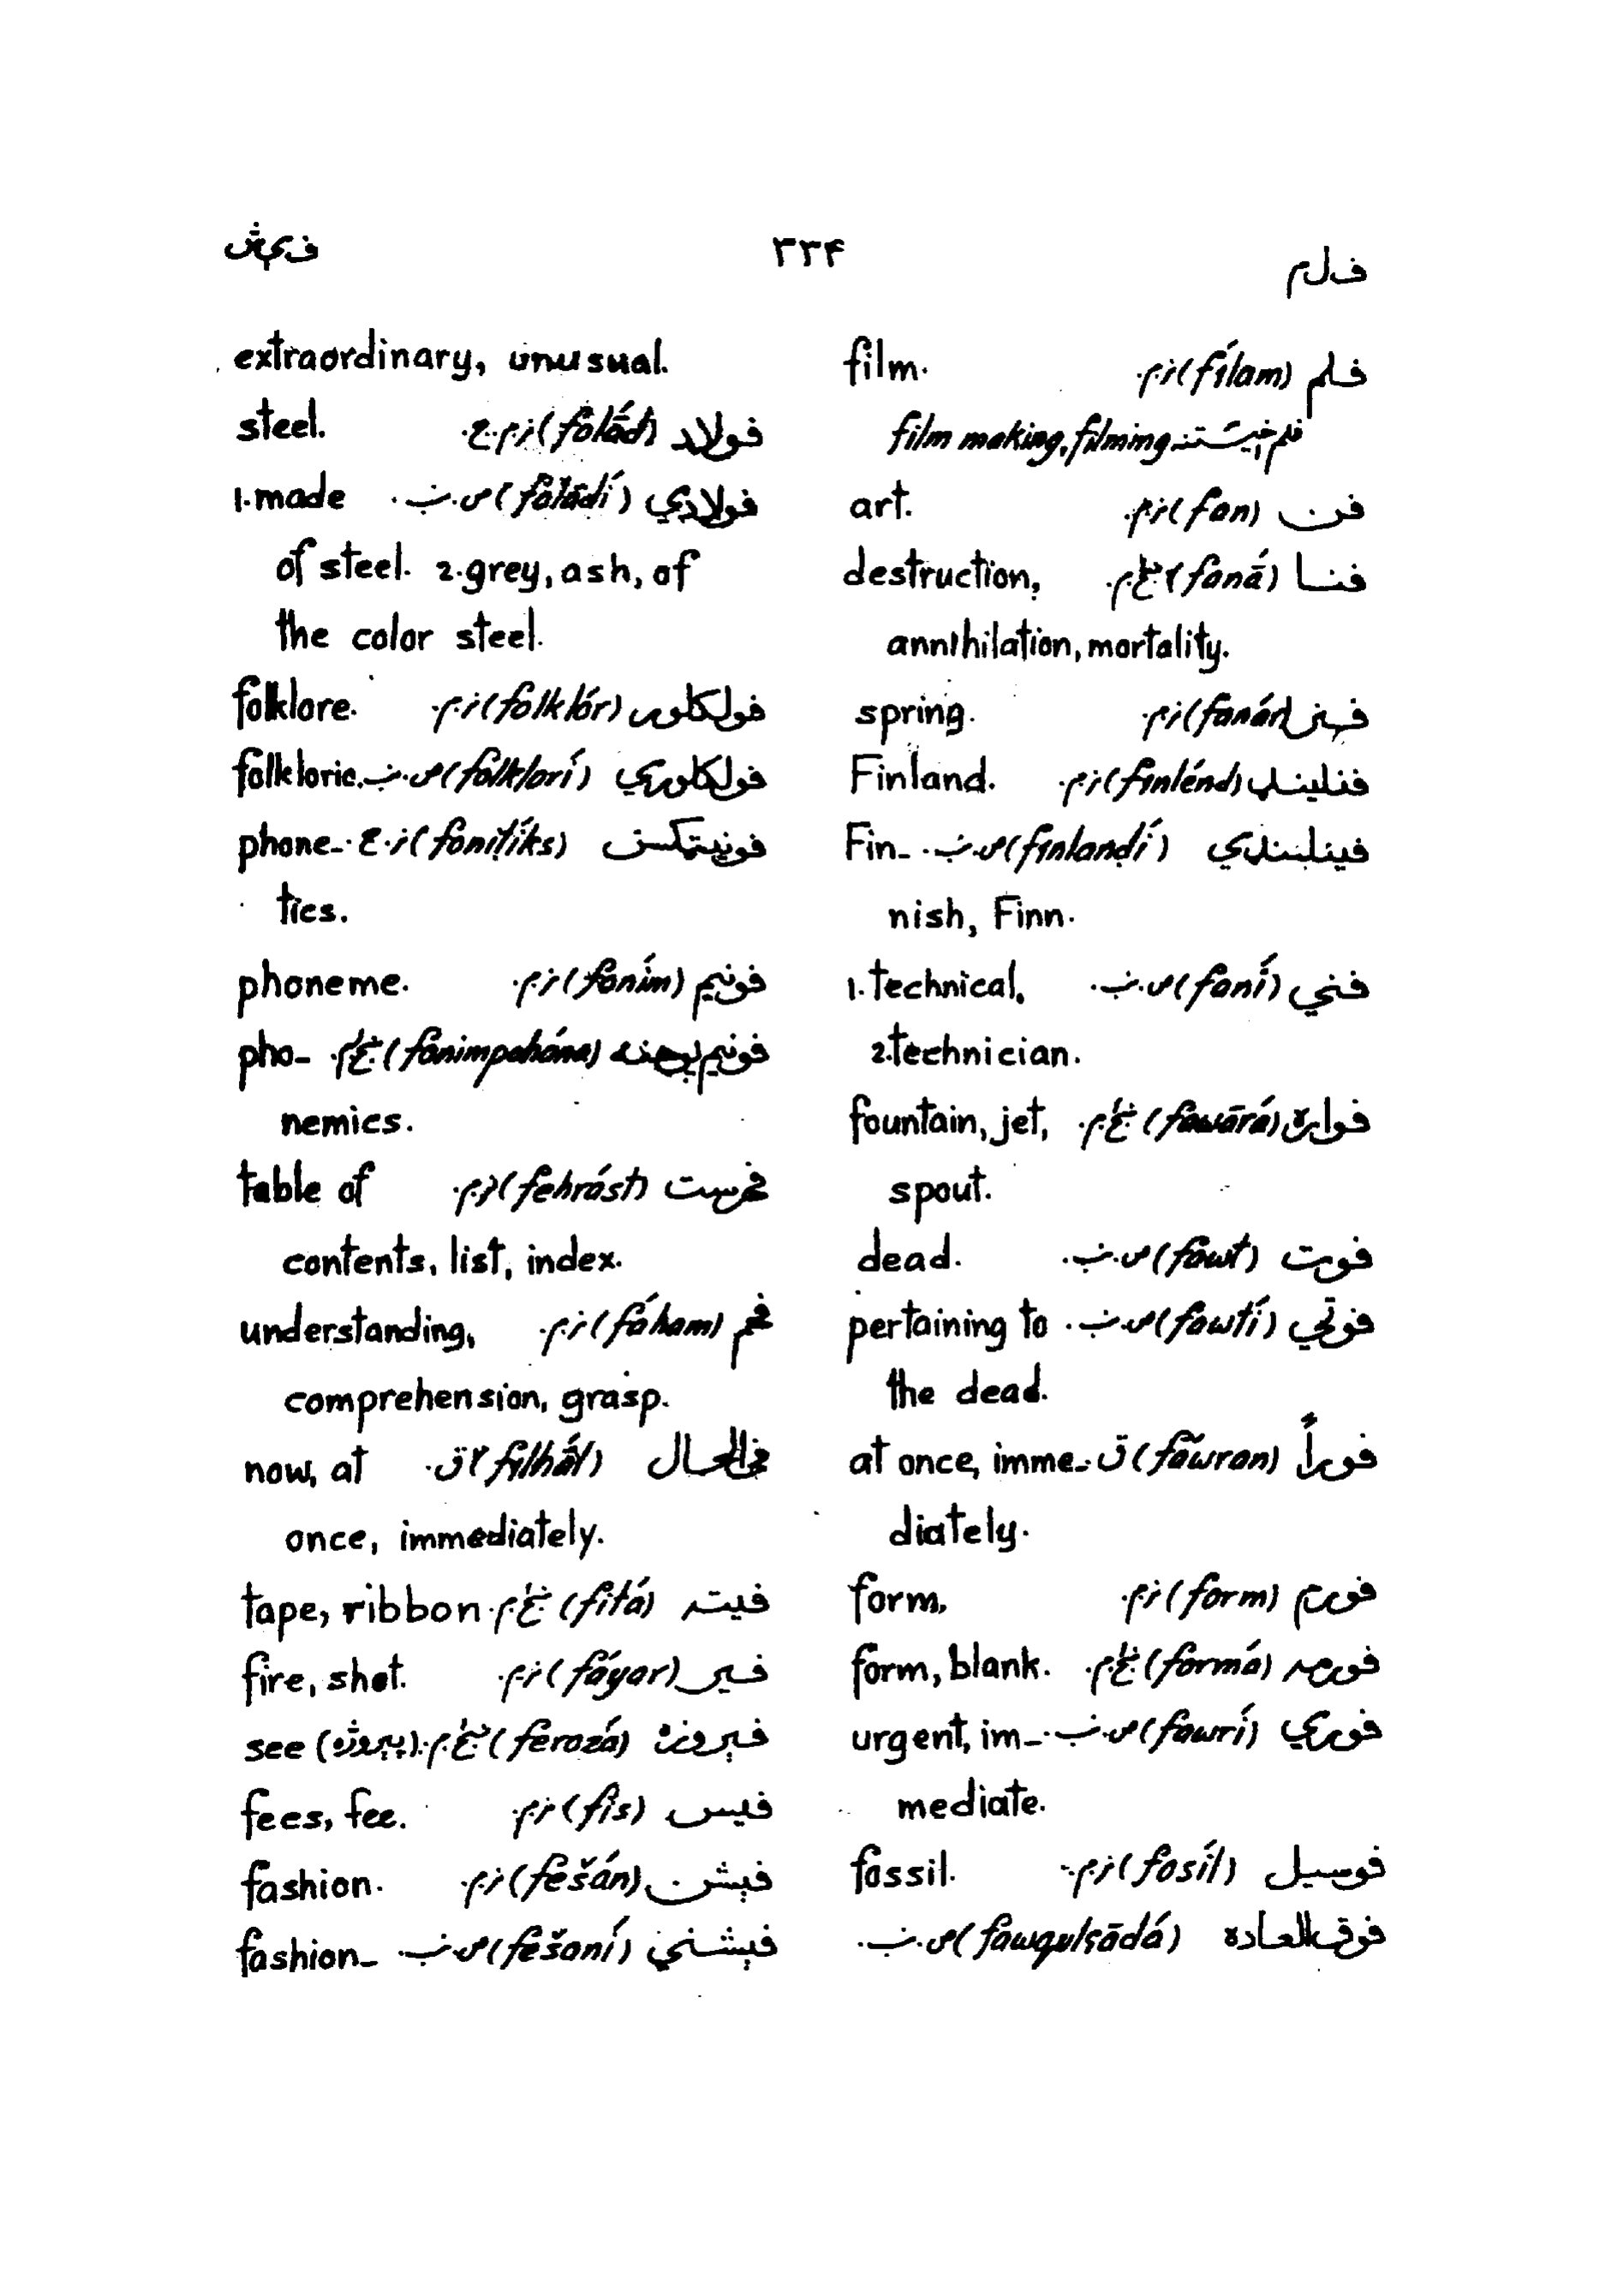 ف‌ل‌م ۳۳۴ ف‌ي‌ش
فلم (fílam) ز.م. film.
film making, filming
فن (fan) ز.م. art.
فنا (fanā́) ښځ.م. destruction,
annihilation, mortality.
فنر (fanár) ز.م. spring.
(finlénḍ) ز.م. Finland.
(finlanḍí) ص.ن. Fin-
nish, Finn.
فني (faní) ص.ن. 1. technical,
2. technician.
فواره (fawārá) ښځ.م. fountain, jet,
spout.
فوت (fawt) ص.ن. dead.
فوتي (fawtí) ص.ن. pertaining to
the dead.
فوراً (fawran) ق. at once, imme-
diately.
فورم (form) ز.م. form,
فورمه (formá) ښځ.م. form, blank.
فوري (fawrí) ص.ن. urgent, im-
mediate.
فوسيل (fosíl) ز.م. fossil.
فوق‌العاده (fawqulʿādá) ص.ن.
extraordinary, unusual.
فولاد (folā́d) ز.م.ج. steel.
فولادي (folādí) ص.ن. 1. made
of steel. 2. grey, ash, of
the color steel.
فولکلور (folklór) ز.م. folklore.
فولکلوري (folklorí) ص.ن. folkloric.
(foniṭíks) ز.ج. phone-
tics.
فونيم (foním) ز.م. phoneme.
فونيم‌پوهنه (fonimpohána) ښځ.م. pho-
nemics.
فهرست (fehrást) ز.م. table of
contents, list, index.
فهم (fáham) ز.م. understanding,
comprehension, grasp.
في‌الحال (filhā́l) ق. now, at
once, immediately.
فيته (fitá) ښځ.م. tape, ribbon.
فير (fáyar) ز.م. fire, shot.
فېروزه (ferozá) ښځ.م. see (پېروزه).
فيس (fis) ز.م. fees, fee.
فېشن (fešán) ز.م. fashion.
فېشني (fešaní) ص.ن. fashion-